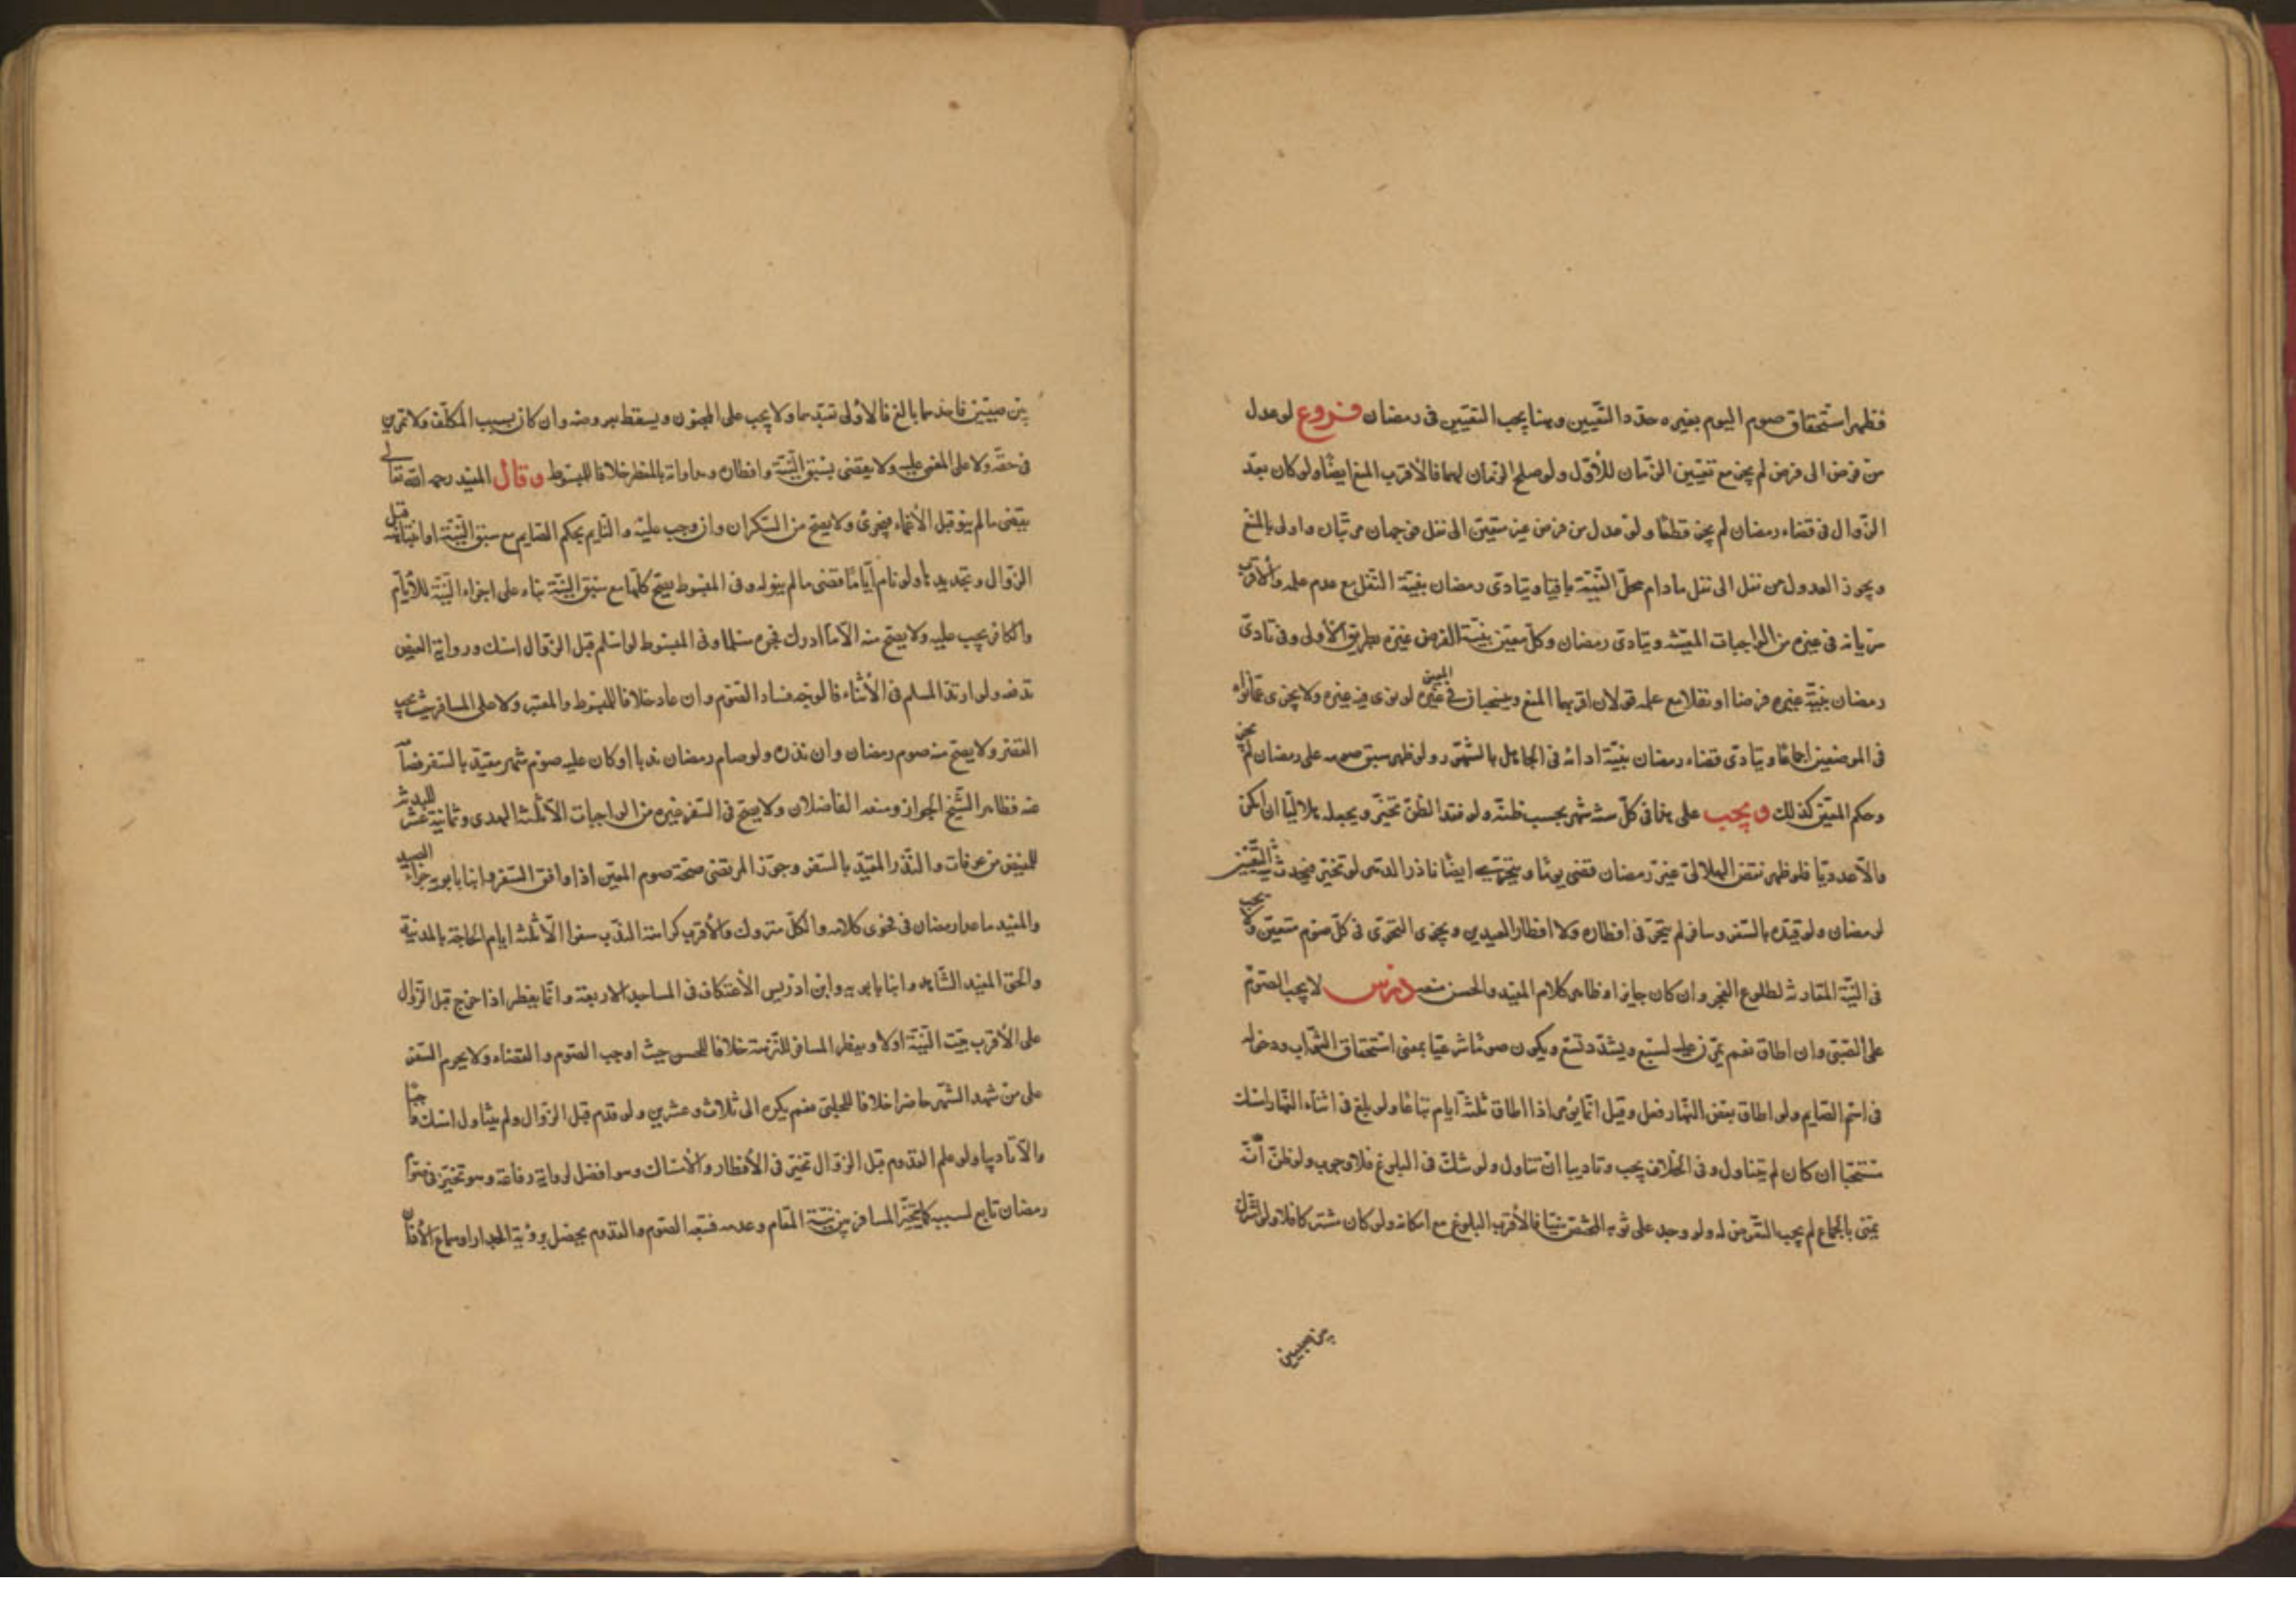 فظهر استحقاق صوم اليوم بغيره حدد التعيين وهنا يجب التعيين في رمضان فروع لو عدل
من فرض الى فرض لم يجز مع تعيين الزمان للأول ولو صلح الزمان لهما فالأقرب المنع ايضا ولو كان بعد
الزوال في قضاء رمضان لم يجز قطعا ولو عدل من فرض غير متعين الى نفل فوجهان مرتبان واولى بالمنع
ويجوز العدول من نفل الى نفل مادام محل النية باقيا ويتادى رمضان بنية النفل مع عدم علمه والأقرب
سريانه في غيره من الواجبات المعينة ويتادى رمضان وكل معين بنية الفرض غيره بطريق الأولى وفي تادى
رمضان بنية غيره فرضا او نفلا مع علمه قولان اقربهما المنع وينسحبان في غيره المعين لو نوى فيه غيره ولا يجزى عما نواه
في الموضعين اجماعا ويتادى قضاء رمضان بنية ادائه في الجاهل بالشهور ولو ظهر سبق صومه على رمضان لم يجز
وحكم المعين كذلك ويجب على في كل سنة شهر بحسب ظنه ولو فقد الظن تخير ويجعله هلاليا ان امكن
والا عدديا فلو ظهر نقص الهلالي غير رمضان قضى يوما ويتحرى ايضا ناذر الدهر لو تخير فيحدث التغيير
لرمضان ولو قيده بالسفر وسافر لم يتحر في افطاره ولا افطار العيدين ويجزى التحرى في كل صوم متعين ولا يجب
في النية المقارنة لطلوع الفجر وان كان جايزا وظاهر كلام المفيد والحسن منعه درس لا يجب الصوم
على الصبي وان اطاق نعم يمرن عليه لسبع ويشدد لتسع ويكون صوما شرعيا بمعنى استحقاق الثواب ودخوله
في اسم الصايم ولو اطاق بعض النهار فعل وقيل انما يؤمر اذا اطاق ثلثة ايام تباعا ولو بلغ في اثناء النهار امسك
مستحبا ان كان لم يتناول وفي الخلاف يجب وتاديبا ان تناول ولو شك في البلوغ فلا وجوب ولو ظن انه
يمنى بالجماع لم يجب التعرض له ولو وجد على ثوبه المختص منيا فالأقرب البلوغ مع امكانه ولو كان مشتركا فلا ولو اشترك
بين صبيين
بين صبيين فاحدهما بالغ فالأولى تعبدهما ولا يجب على المجنون ويسقط بعروضه وان كان بسبب المكلف ولا تمرين
في حقه ولا على المغمى عليه ولا يقضى بسبق النية وافطاره ومداواته بالمفطر خلافا للمبسوط وقال المفيد رحمه الله تعالى
يقضى ما لم ينو قبل الأغماء فيجزى ولا يصح من السكران وان وجب عليه والنايم بحكم الصايم مع سبق النية او انتباهه قبل
الزوال وتجديدها ولو نام اياما قضى ما لم ينو له وفي المبسوط يصح كلها مع سبق النية بناء على اجزاء النية للأيام
والكافر يجب عليه ولا يصح منه الا ما ادرك فجره مسلما وفي المبسوط لو اسلم قبل الزوال امسك ورواية العيص
تدفعه ولو ارتد المسلم في الأثناء فالوجه فساد الصوم وان عاد خلافا للمبسوط والمعتبر ولا على المسافر حيث يجب
القصر ولا يصح منه صوم رمضان وان نذره ولو صام رمضان ندبا او كان عليه صوم شهر مقيد بالسفر فصام
عنه فظاهر الشيخ الجواز ومنعه الفاضلان ولا يصح في السفر غيره من الواجبات الا ثلثة الهدى وثمانية عشر للبدنة
للمفيض من عرفات والنذر المقيد بالسفر وجوز المرتضى صحة صوم المعين اذا وافق السفر وابنا بابويه جزاء الصيد
والمفيد ما عدا رمضان في فحوى كلامه والكل متروك والأقرب كراهة الندب سفرا الا ثلثة ايام الحاجة بالمدينة
والحق المفيد المشاهد وابنا بابويه وابن ادريس الأعتكاف في المساجد الاربعة وانما يفطر اذا خرج قبل الزوال
على الأقرب بيت النية اولا ويفطر المسافر للنزهة خلافا للحسن حيث اوجب الصوم والقضاء ولا يحرم السفر
على من شهد الشهر حاضرا خلافا للحلبي نعم يكره الى ثلاث وعشرين ولو قدم قبل الزوال ولم يتناول امسك وجوبا
والا تاديبا ولو علم القدوم قبل الزوال تخير في الأفطار والأمساك وهو افضل لرواية رفاعة وهو تخيير في صوم
رمضان تابع لسببه كما يتخير المسافر بين نية المقام وعدمه فيتبعه الصوم والقدوم يحصل برؤية الجدار او سماع الأذان